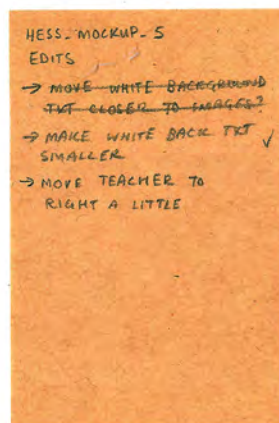 HESS_MOCKUP_5
EDITS
→ MOVE WHITE BACKGROUND
TXT CLOSER TO IMAGES?
→ MAKE WHITE BACK TXT ✓
SMALLER
→ MOVE TEACHER TO
RIGHT A LITTLE